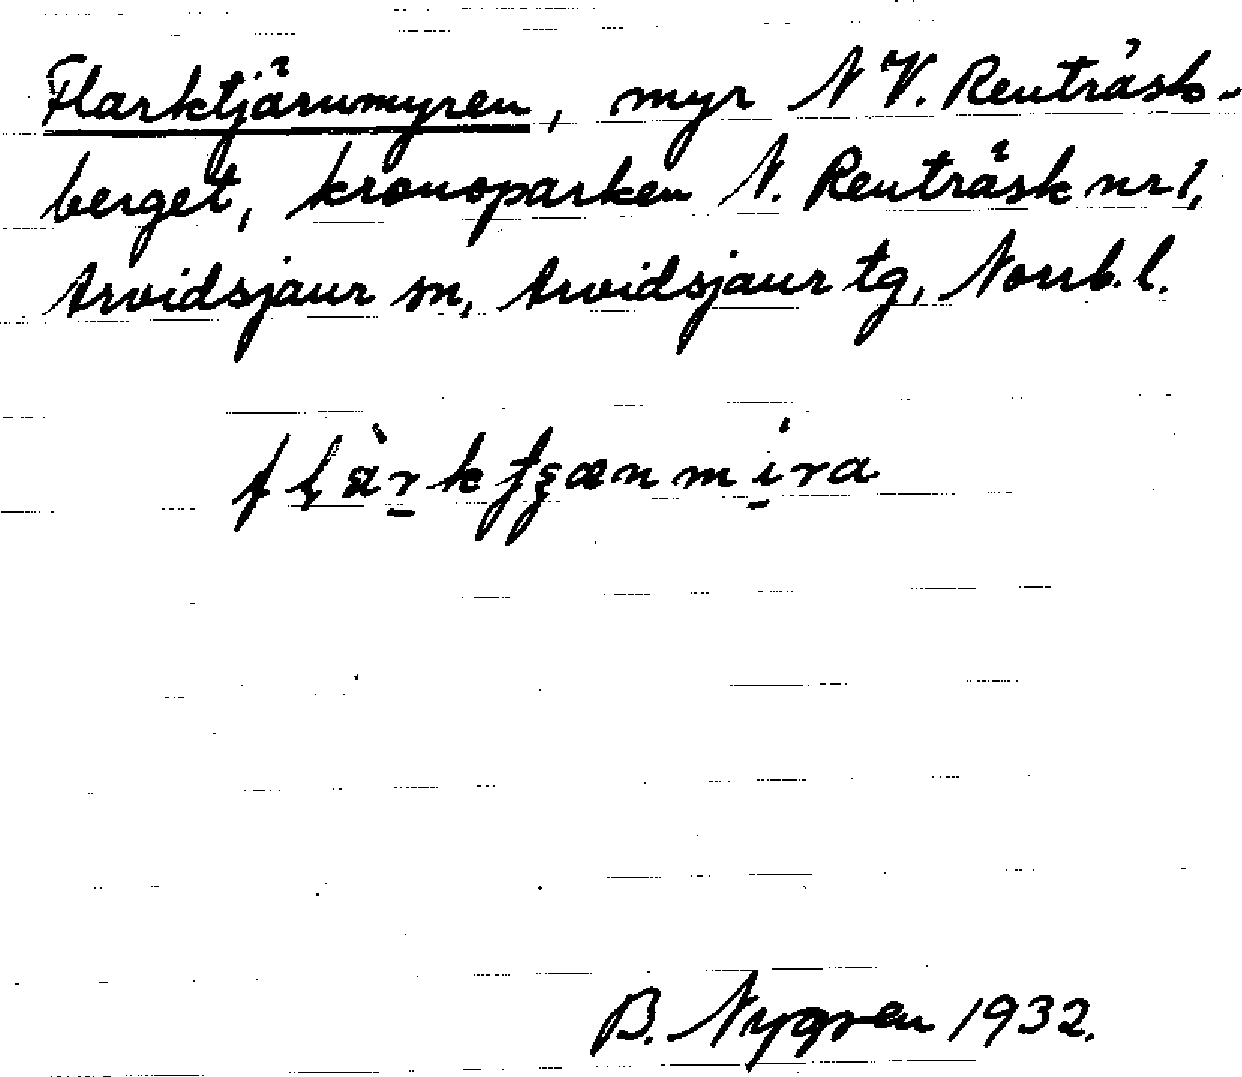 Flarktjärnmyren, myr N V. Renträsk-
berget, kronoparken N. Renträsk nr 1,
Arvidsjaur sn, Arvidsjaur tg, Norrb. l.
B. Nygren 1932.